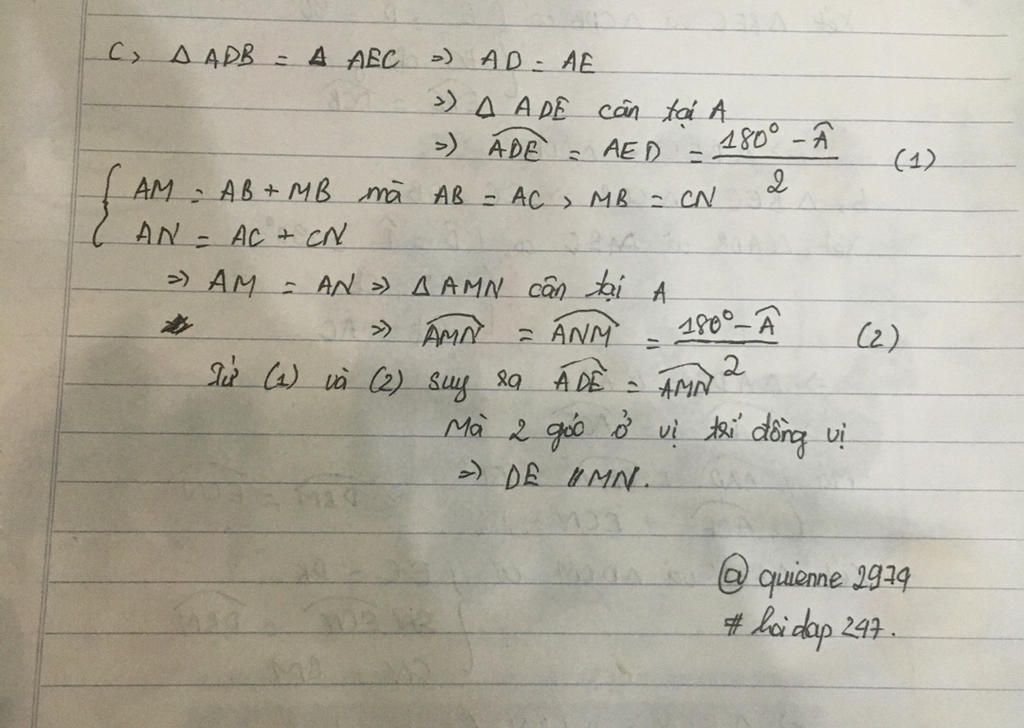 c, Δ ADB = Δ AEC => AD = AE
=> Δ ADE cân tại A
=> \widehat{ADE} = AED = \frac{180° - \widehat{A}}{2} (1)
{ AM = AB + MB mà AB = AC, MB = CN
AN = AC + CN
=> AM = AN => Δ AMN cân tại A
=> \widehat{AMN} = \widehat{ANM} = \frac{180° - \widehat{A}}{2} (2)
Từ (1) và (2) suy ra \widehat{ADE} = \widehat{AMN}
Mà 2 góc ở vị trí đồng vị
=> DE // MN.
@ quienne 2979
# hoidap 247.